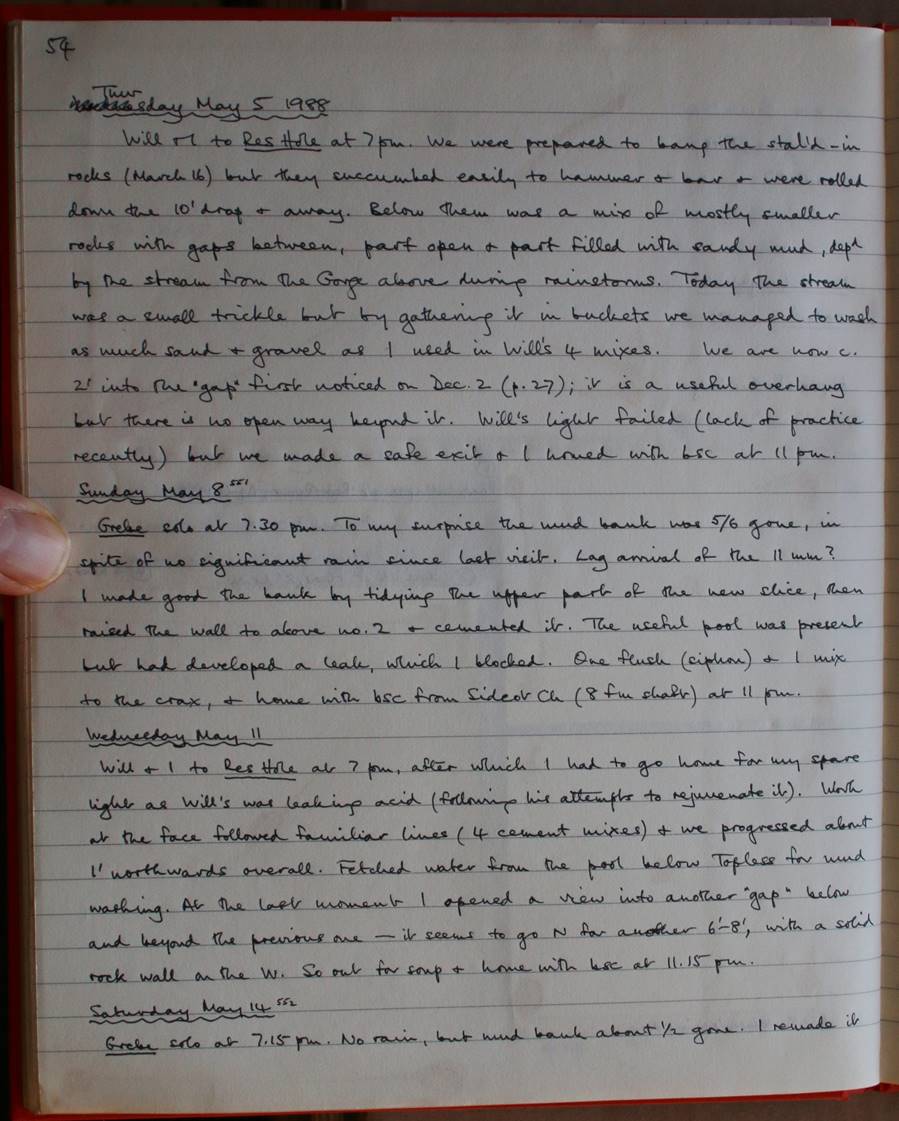 54
Thursday May 5 1988
Will + I to Res Hole at 7 pm. We were prepared to bang the stal'd-in
rocks (March 16) but they succumbed easily to hammer + bar + were rolled
down the 10' drop + away. Below them was a mix of mostly smaller
rocks with gaps between, part open + part filled with sandy mud, depd
by the stream from the Gorge above during rainstorms. Today the stream
was a small trickle but by gathering it in buckets we managed to wash
as much sand + gravel as I used in Will's 4 mixes. We are now c.
2' into the "gap" first noticed on Dec. 2 (p. 27); it is a useful overhang
but there is no open way beyond it. Will's light failed (lack of practice
recently) but we made a safe exit + I homed with bsc at 11 pm.
Sunday May 8 551
Grebe solo at 7.30 pm. To my surprise the mud bank was 5/6 gone, in
spite of no significant rain since last visit. Lag arrival of the 11 mm?
I made good the bank by tidying the upper part of the new slice, then
raised the wall to above no. 2 + cemented it. The useful pool was present
but had developed a leak, which I blocked. One flush (siphon) + 1 mix
to the crax, + home with bsc from Sidcot Ch (8 fm shaft) at 11 pm.
Wednesday May 11
Will + I to Res Hole at 7 pm, after which I had to go home for my spare
light as Will's was leaking acid (following his attempts to rejuvenate it). Work
at the face followed familiar lines (4 cement mixes) + we progressed about
1' northwards overall. Fetched water from the pool below Topless for mud
washing. At the last moment I opened a view into another "gap" below
and beyond the previous one — it seems to go N for another 6'-8', with a solid
rock wall on the W. So out for soup + home with bsc at 11.15 pm.
Saturday May 14 552
Grebe solo at 7.15 pm. No rain, but mud bank about 1/2 gone. I remade it